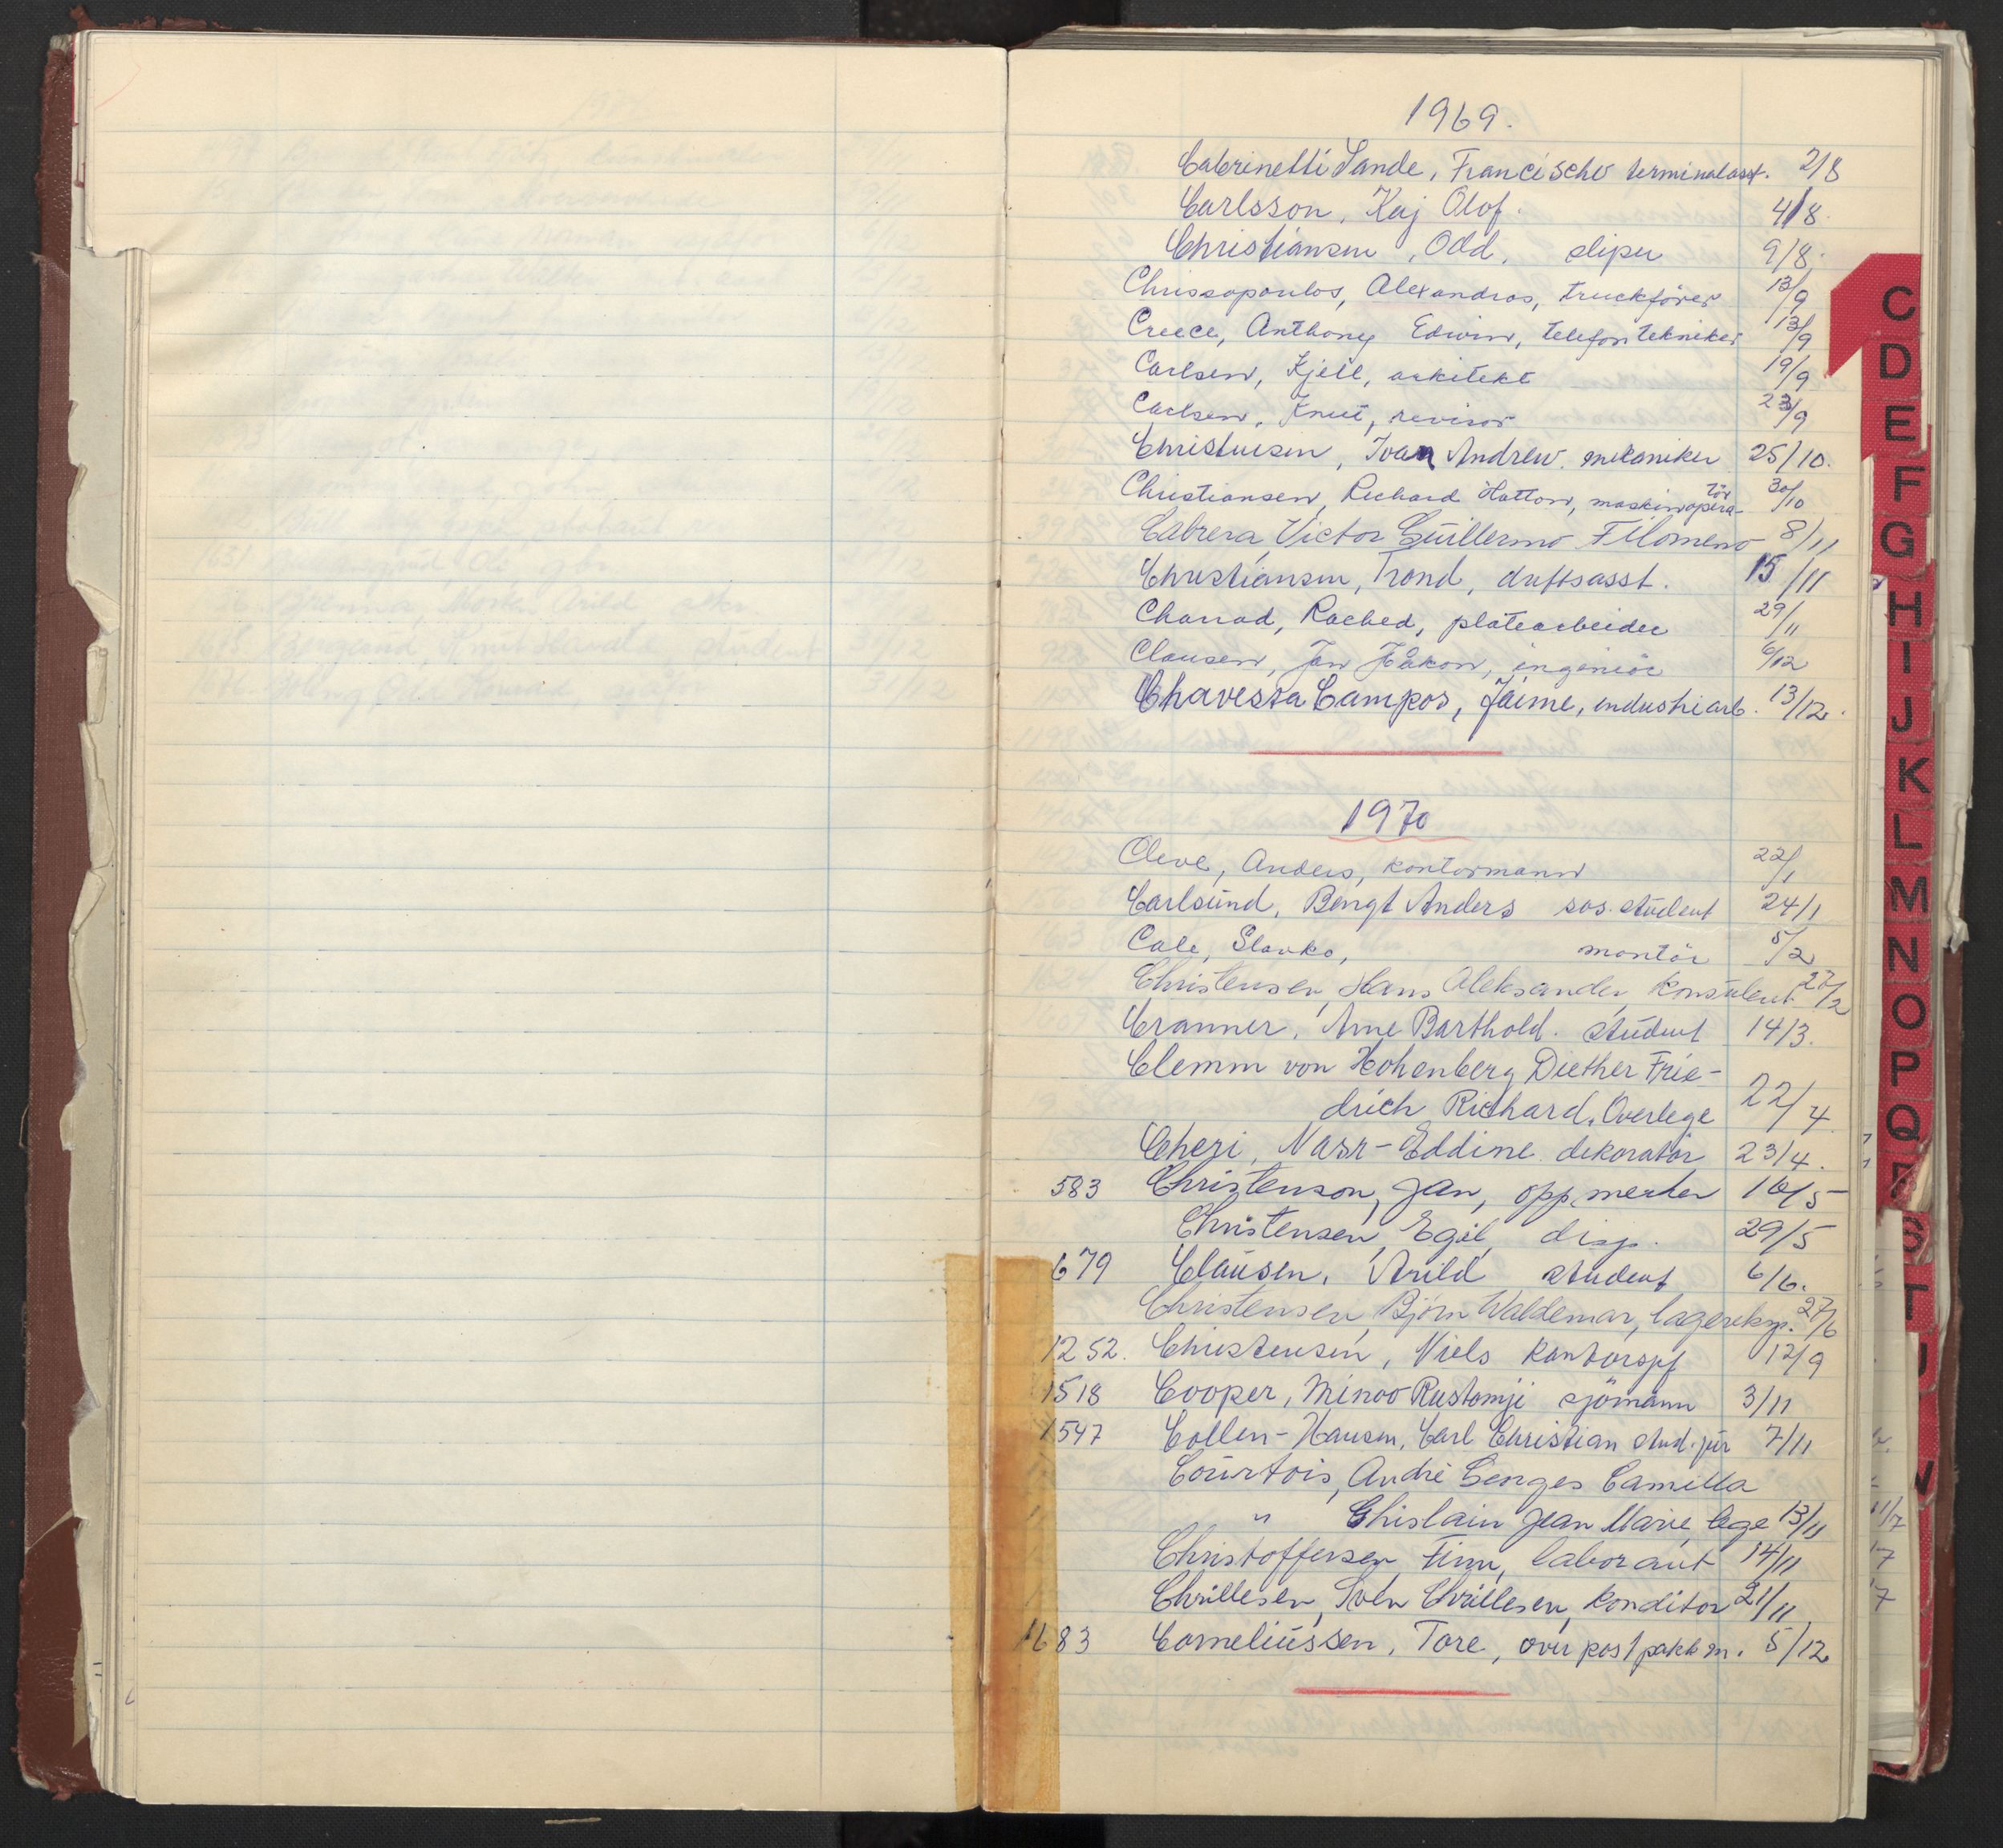 1969.
Cabrinetti Sande, Francischo terminalasst. 2/8
Carlsson, Kaj Olof. 4/8.
Christiansen, Odd, sliper 9/8.
Chrissopoulos, Alexandros, truckförer 13/9
Creece, Anthony Edwin, telefontekniker 13/9
Carlsen, Kjell, arkitekt 19/9
Carlsen, Knut, revisor 23/9
Christiansen, Ivan Andrew. mekaniker 25/10.
Christiansen, Richard Hatton, maskinopera-tör 30/10
Cabrera, Victor Guillermo Filomeno 8/11
Christiansen, Trond, driftsasst. 15/11
Charrad, Rached, platearbeider 29/11
Clausen, Jan Håkon, ingeniör 6/12
Chavesta Campos, Jaime, industriarb. 13/12.
1970
Cleve, Anders, kontormann 22/1
Carlsund, Bengt Anders sos. student 24/1
Cale, Slavko, montör 5/2
Christensen, Hans Aleksander, konsulent 27/2
Cranner, Arne Barthold. student 14/3.
Clemm von Hohenberg, Diether Frie-
drich Richard. Overlege 22/4
Chezi, Nasr-Eddine dekoratör 23/4.
583 Christenson, Jan, opp.merker 16/5
Christensen, Egil, disp. 29/5
679 Clausen, Arild student 6/6.
Christensen, Björn Waldemar, lagereksp. 27/6
1252. Christensen, Niels kontorsjef 12/9
1518 Cooper, Minoo Rustomji sjömann 3/11
1547 Collen-Hansen, Carl Christian stud. jur 7/11
Courtois, André Georges Camilla
" Ghislain Jean Marie, lege 13/11
Christoffersen, Finn, laborant 14/11
Chrillesen, Sven Chrillesen, konditor 21/11
1683 Corneliussen, Tore, over postpakkm. 5/12
C
D
E
F
G
H
I
J
K
L
M
N
O
P
Q
S
T